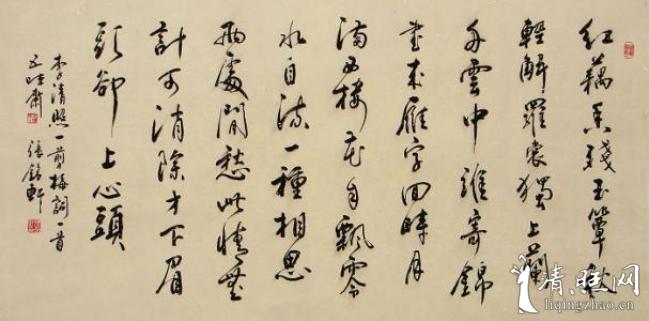 紅藕香殘玉簟秋
輕解羅裳獨上蘭
舟雲中誰寄錦
書來雁字回時月
滿西樓花自飄零
水自流一種相思
兩處閒愁此情無
計可消除才下眉
頭卻上心頭
李清照一剪梅詞一首
張
軒
清照网
liqingzhao.com